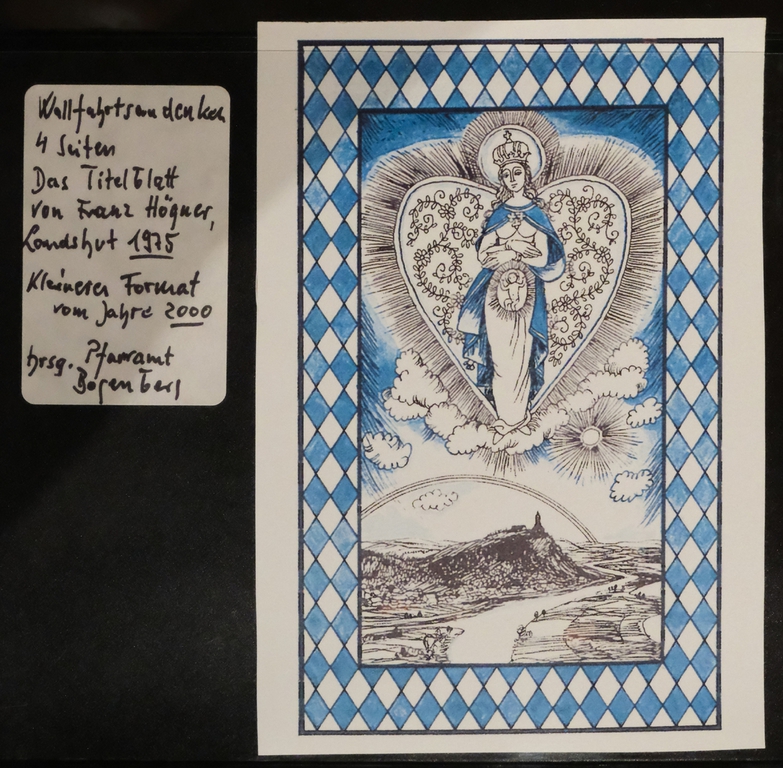 Wallfahrtsandenken
4 Seiten
Das Titelblatt
von Franz Högner,
Landshut 1975
Kleineres Format
vom Jahre 2000
hrsg. Pfarramt
Bogenberg